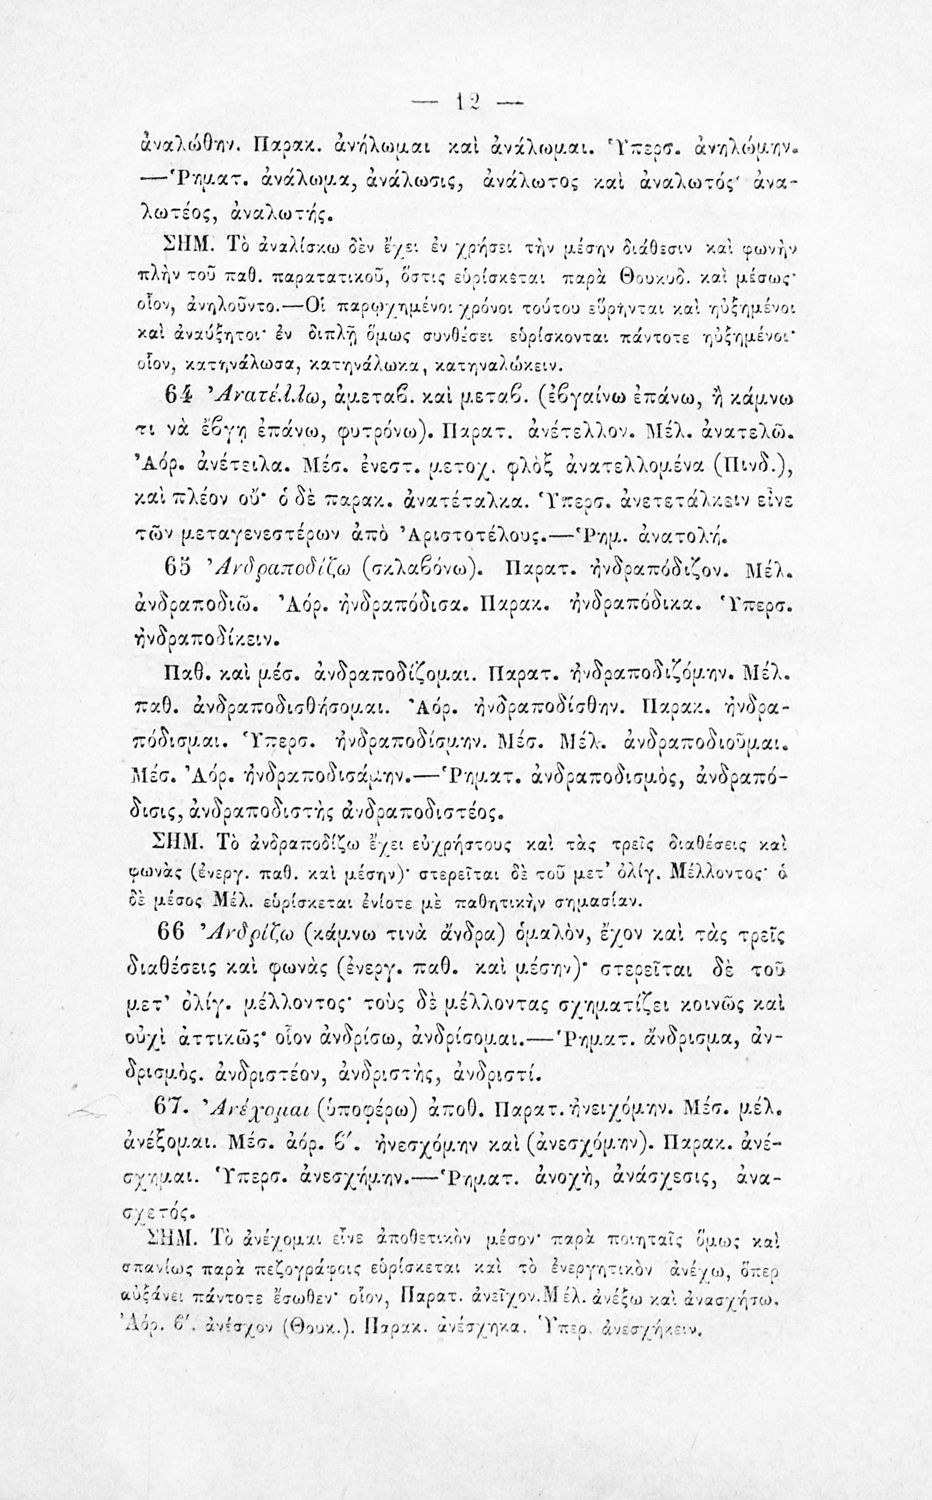 — 12 —
ἀναλώθην. Παρακ. ἀνήλωμαι καὶ ἀνάλωμαι. Ὑπερσ. ἀνηλώμην.
—Ῥηματ. ἀνάλωμα, ἀνάλωσις, ἀνάλωτος καὶ ἀναλωτός· ἀνα-
λωτέος, ἀναλωτής.
ΣΗΜ. Τὸ ἀναλίσκω δὲν ἔχει ἐν χρήσει τὴν μέσην διάθεσιν καὶ φωνὴν
πλὴν τοῦ παθ. παρατατικοῦ, ὅστις εὑρίσκεται παρὰ Θουκυδ. καὶ μέσως·
οἷον, ἀνηλοῦντο.—Οἱ παρῳχημένοι χρόνοι τούτου εὕρηνται καὶ ηὐξημένοι
καὶ ἀναύξητοι· ἐν διπλῇ ὅμως συνθέσει εὑρίσκονται πάντοτε ηὐξημένοι·
οἷον, κατηνάλωσα, κατηνάλωκα, κατηναλώκειν.
64 Ἀνατέλλω, ἀμεταβ. καὶ μεταβ. (ἐβγαίνω ἐπάνω, ἢ κάμνω
τι νὰ ἔβγῃ ἐπάνω, φυτρόνω). Παρατ. ἀνέτελλον. Μέλ. ἀνατελῶ.
Ἀόρ. ἀνέτειλα. Μέσ. ἐνεστ. μετοχ. φλὸξ ἀνατελλομένα (Πινδ.),
καὶ πλέον οὔ· ὁ δὲ παρακ. ἀνατέταλκα. Ὑπερσ. ἀνετετάλκειν εἶνε
τῶν μεταγενεστέρων ἀπὸ Ἀριστοτέλους.—Ῥημ. ἀνατολή.
65 Ἀνδραποδίζω (σκλαβόνω). Παρατ. ἠνδραπόδιζον. Μέλ.
ἀνδραποδιῶ. Ἀόρ. ἠνδραπόδισα. Παρακ. ἠνδραπόδικα. Ὑπερσ.
ἠνδραποδίκειν.
Παθ. καὶ μέσ. ἀνδραποδίζομαι. Παρατ. ἠνδραποδιζόμην. Μέλ.
παθ. ἀνδραποδισθήσομαι. Ἀόρ. ἠνδραποδίσθην. Παρακ. ἠνδρα-
πόδισμαι. Ὑπερσ. ἠνδραποδίσμην. Μέσ. Μέλ. ἀνδραποδιοῦμαι.
Μέσ. Ἀόρ. ἠνδραποδισάμην.—Ῥηματ. ἀνδραποδισμὸς, ἀνδραπό-
δισις, ἀνδραποδιστὴς ἀνδραποδιστέος.
ΣΗΜ. Τὸ ἀνδραποδίζω ἔχει εὐχρήστους καὶ τὰς τρεῖς διαθέσεις καὶ
φωνὰς (ἐνεργ. παθ. καὶ μέσην)· στερεῖται δὲ τοῦ μετ' ὀλίγ. Μέλλοντος· ὁ
δὲ μέσος Μέλ. εὑρίσκεται ἐνίοτε μὲ παθητικὴν σημασίαν.
66 Ἀνδρίζω (κάμνω τινὰ ἄνδρα) ὁμαλὸν, ἔχον καὶ τὰς τρεῖς
διαθέσεις καὶ φωνὰς (ἐνεργ. παθ. καὶ μέσην)· στερεῖται δὲ τοῦ
μετ' ὀλίγ. μέλλοντος· τοὺς δὲ μέλλοντας σχηματίζει κοινῶς καὶ
οὐχὶ ἀττικῶς· οἷον ἀνδρίσω, ἀνδρίσομαι.—Ῥηματ. ἄνδρισμα, ἀν-
δρισμὸς. ἀνδριστέον, ἀνδριστὴς, ἀνδριστί.
67. Ἀνέχομαι (ὑποφέρω) ἀποθ. Παρατ. ἠνειχόμην. Μέσ. μέλ.
ἀνέξομαι. Μέσ. ἀόρ. β'. ἠνεσχόμην καὶ (ἀνεσχόμην). Παρακ. ἀνέ-
σχημαι. Ὑπερσ. ἀνεσχήμην.—Ῥηματ. ἀνοχὴ, ἀνάσχεσις, ἀνα-
σχετός.
ΣΗΜ. Τὸ ἀνέχομαι εἶνε ἀποθετικὸν μέσον· παρὰ ποιηταῖς ὅμως καὶ
σπανίως παρὰ πεζογράφοις εὑρίσκεται καὶ τὸ ἐνεργητικὸν ἀνέχω, ὅπερ
αὐξάνει πάντοτε ἔσωθεν· οἷον, Παρατ. ἀνεῖχον. Μέλ. ἀνέξω καὶ ἀνασχήσω.
Ἀόρ. β'. ἀνέσχον (Θουκ.). Παρακ. ἀνέσχηκα. Ὑπερ. ἀνεσχήκειν.